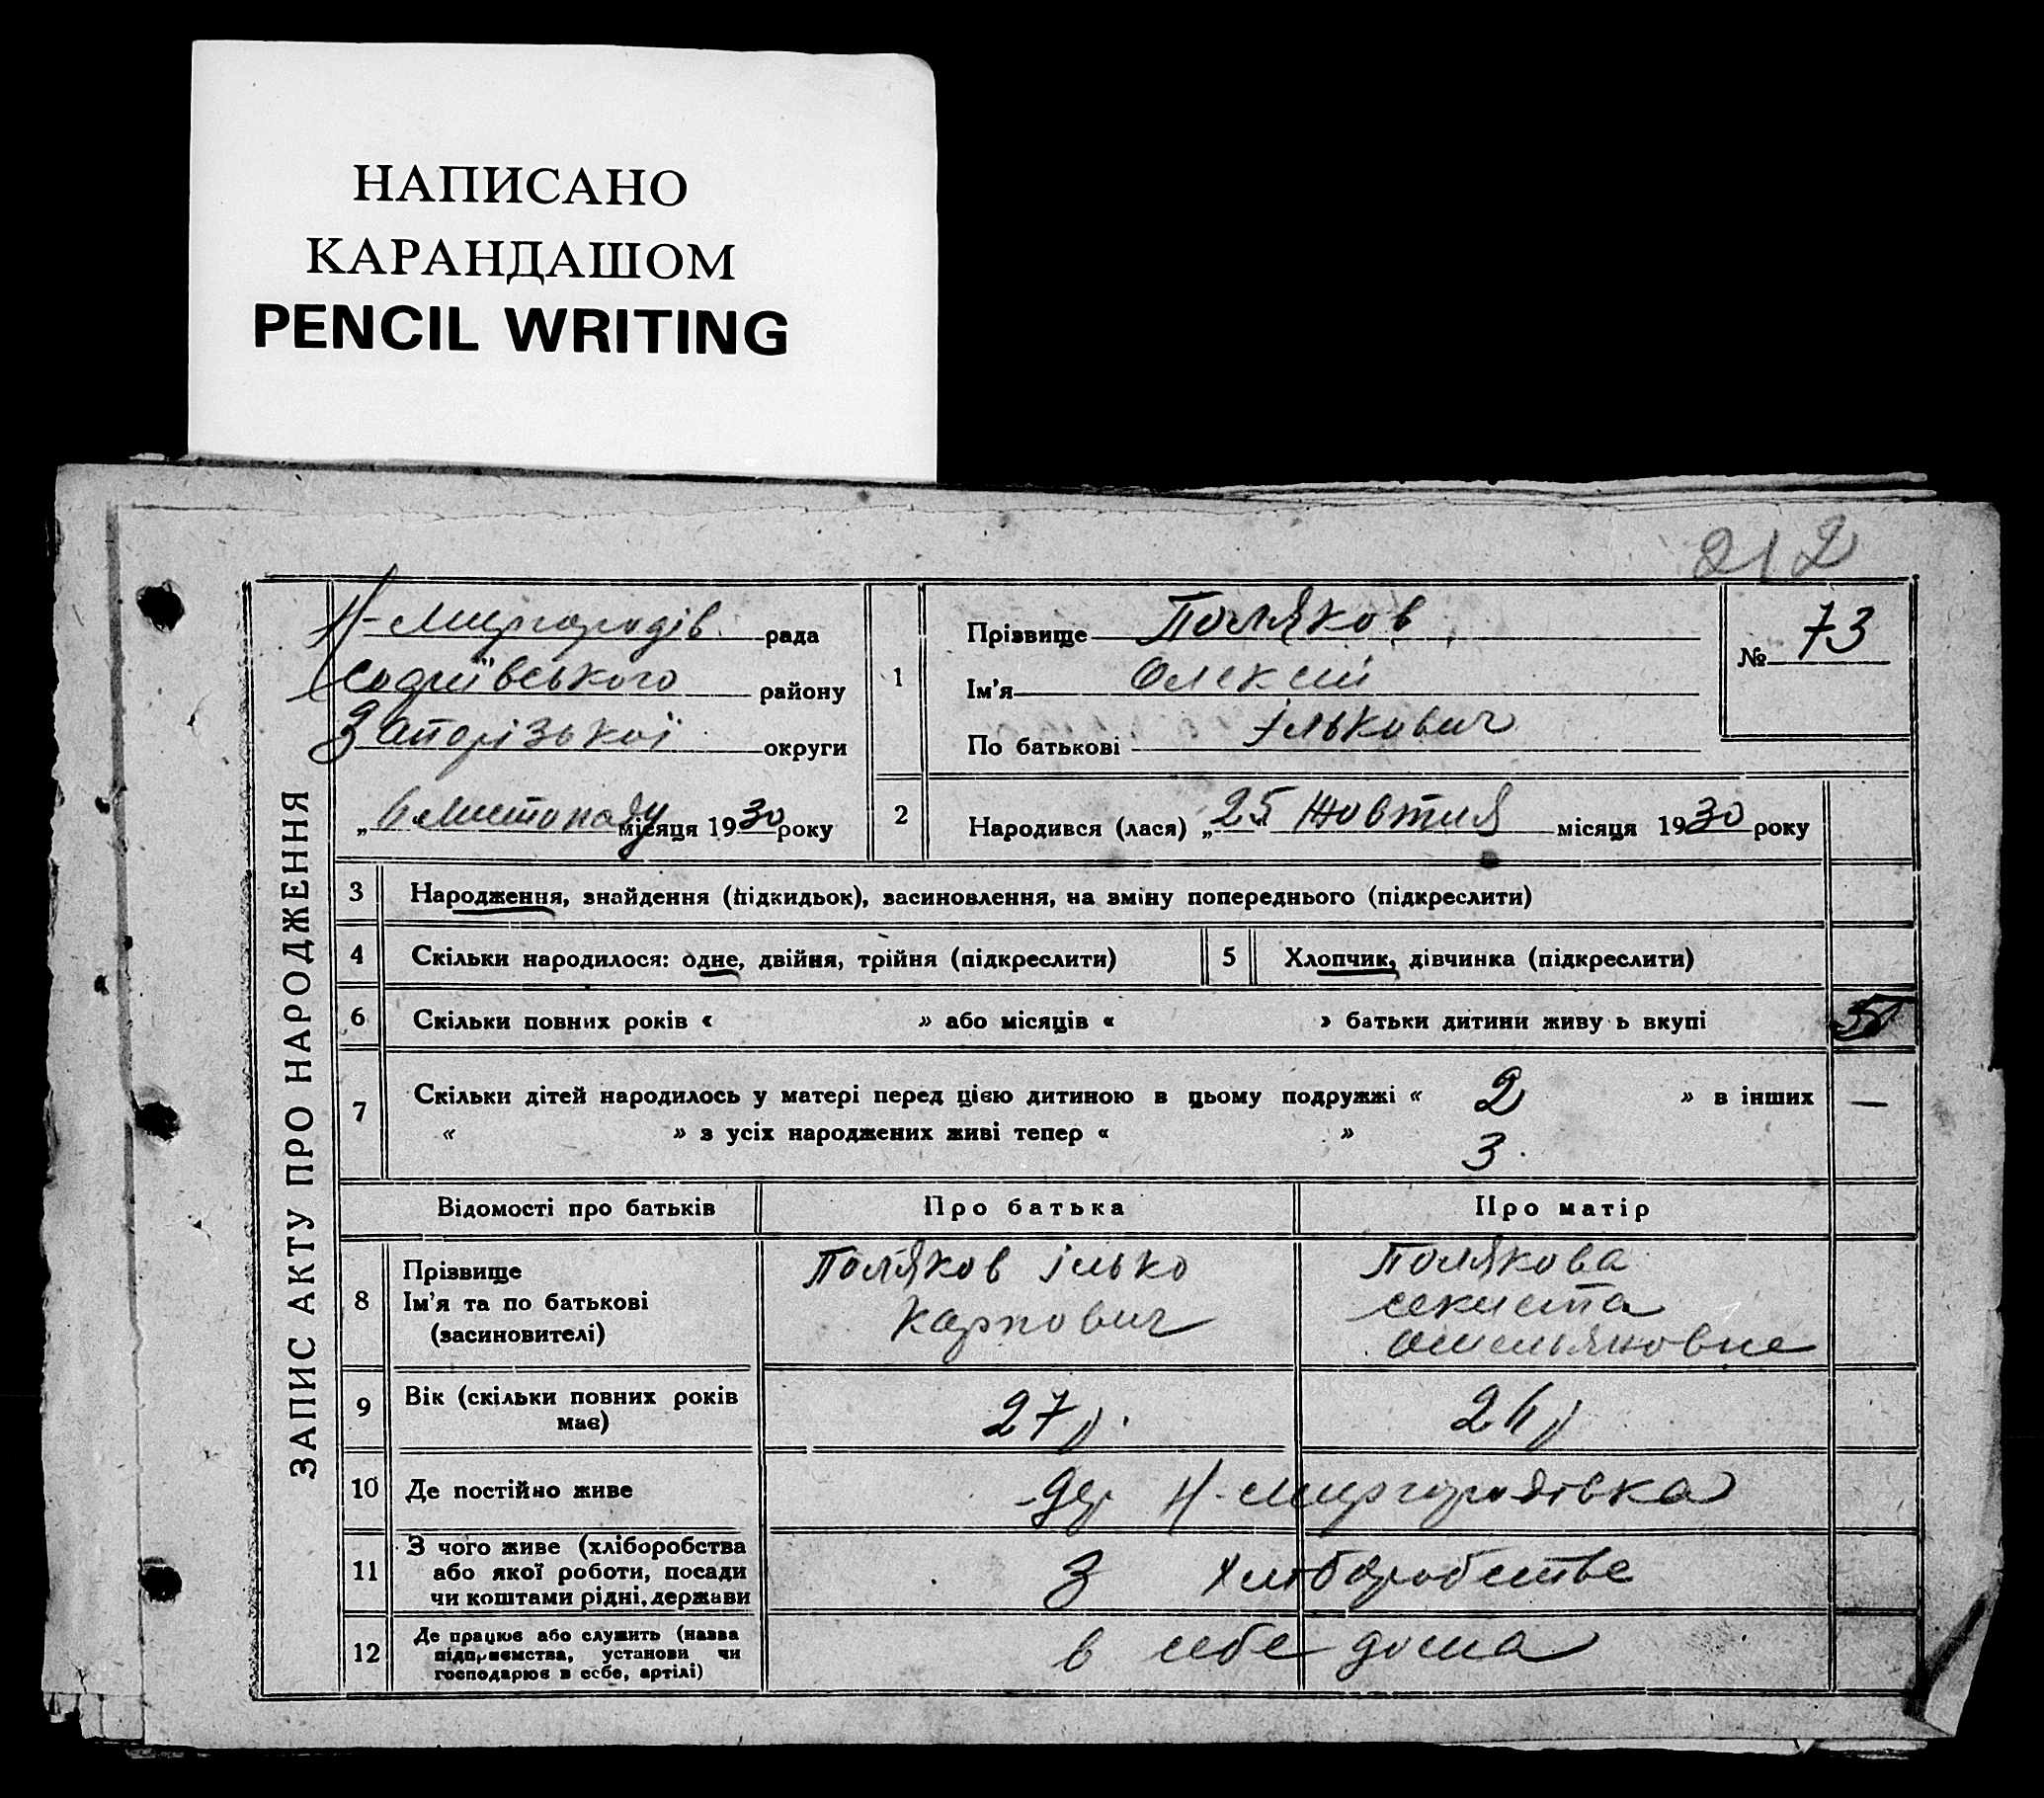 НАПИСАНО
КАРАНДАШОМ
PENCIL WRITING
212
ЗАПИС АКТУ ПРО НАРОДЖЕННЯ
Н-Миргородів рада
району
Запорізької округи
„6 Листопаду місяця 1930 року
1
Прізвище Поляков
Ім'я Олексій
По батькові Ількович
№ 73
2 Народився (лася) „25 Жовтня місяця 1930 року
3 Народження, знайдення (підкидьок), засиновлення, на зміну попереднього (підкреслити)
4 Скільки народилося: одне, двійня, трійня (підкреслити) 5 Хлопчик, дівчинка (підкреслити)
6 Скільки повних років « » або місяців « » батьки дитини живуть вкупі
7 Скільки дітей народилось у матері перед цією дитиною в цьому подружжі « 2 » в інших —
« » з усіх народжених живі тепер « » 3.
Відомості про батьків Про батька Про матір
8 Прізвище
Ім'я та по батькові
(засиновителі)
Поляков Ілько
Карпович
Полякова
Омельяновне
9 Вік (скільки повних років
має)
27 р. 26 р
10 Де постійно живе Н-Миргородівка
11 З чого живе (хліборобства
або якої роботи, посади
чи коштами рідні, держави
З Хліборобстве
12 Де працює або служить (назва
підприємства, установи чи
господарює в себе, артілі)
в себе дома